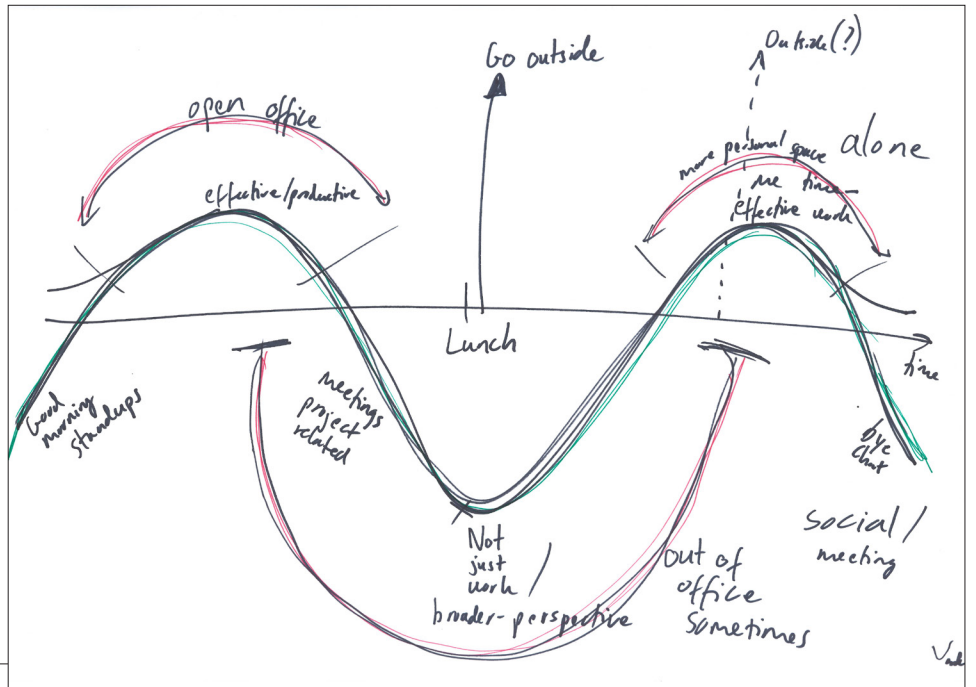 Go outside
Outside(?)
open office
alone
more personal space
effective/productive
me time_
effective work
Lunch
time
Good
morning
standups
meetings
project
related
bye
chat
Not
just
work /
broader-perspective
out of
office
sometimes
social/
meeting